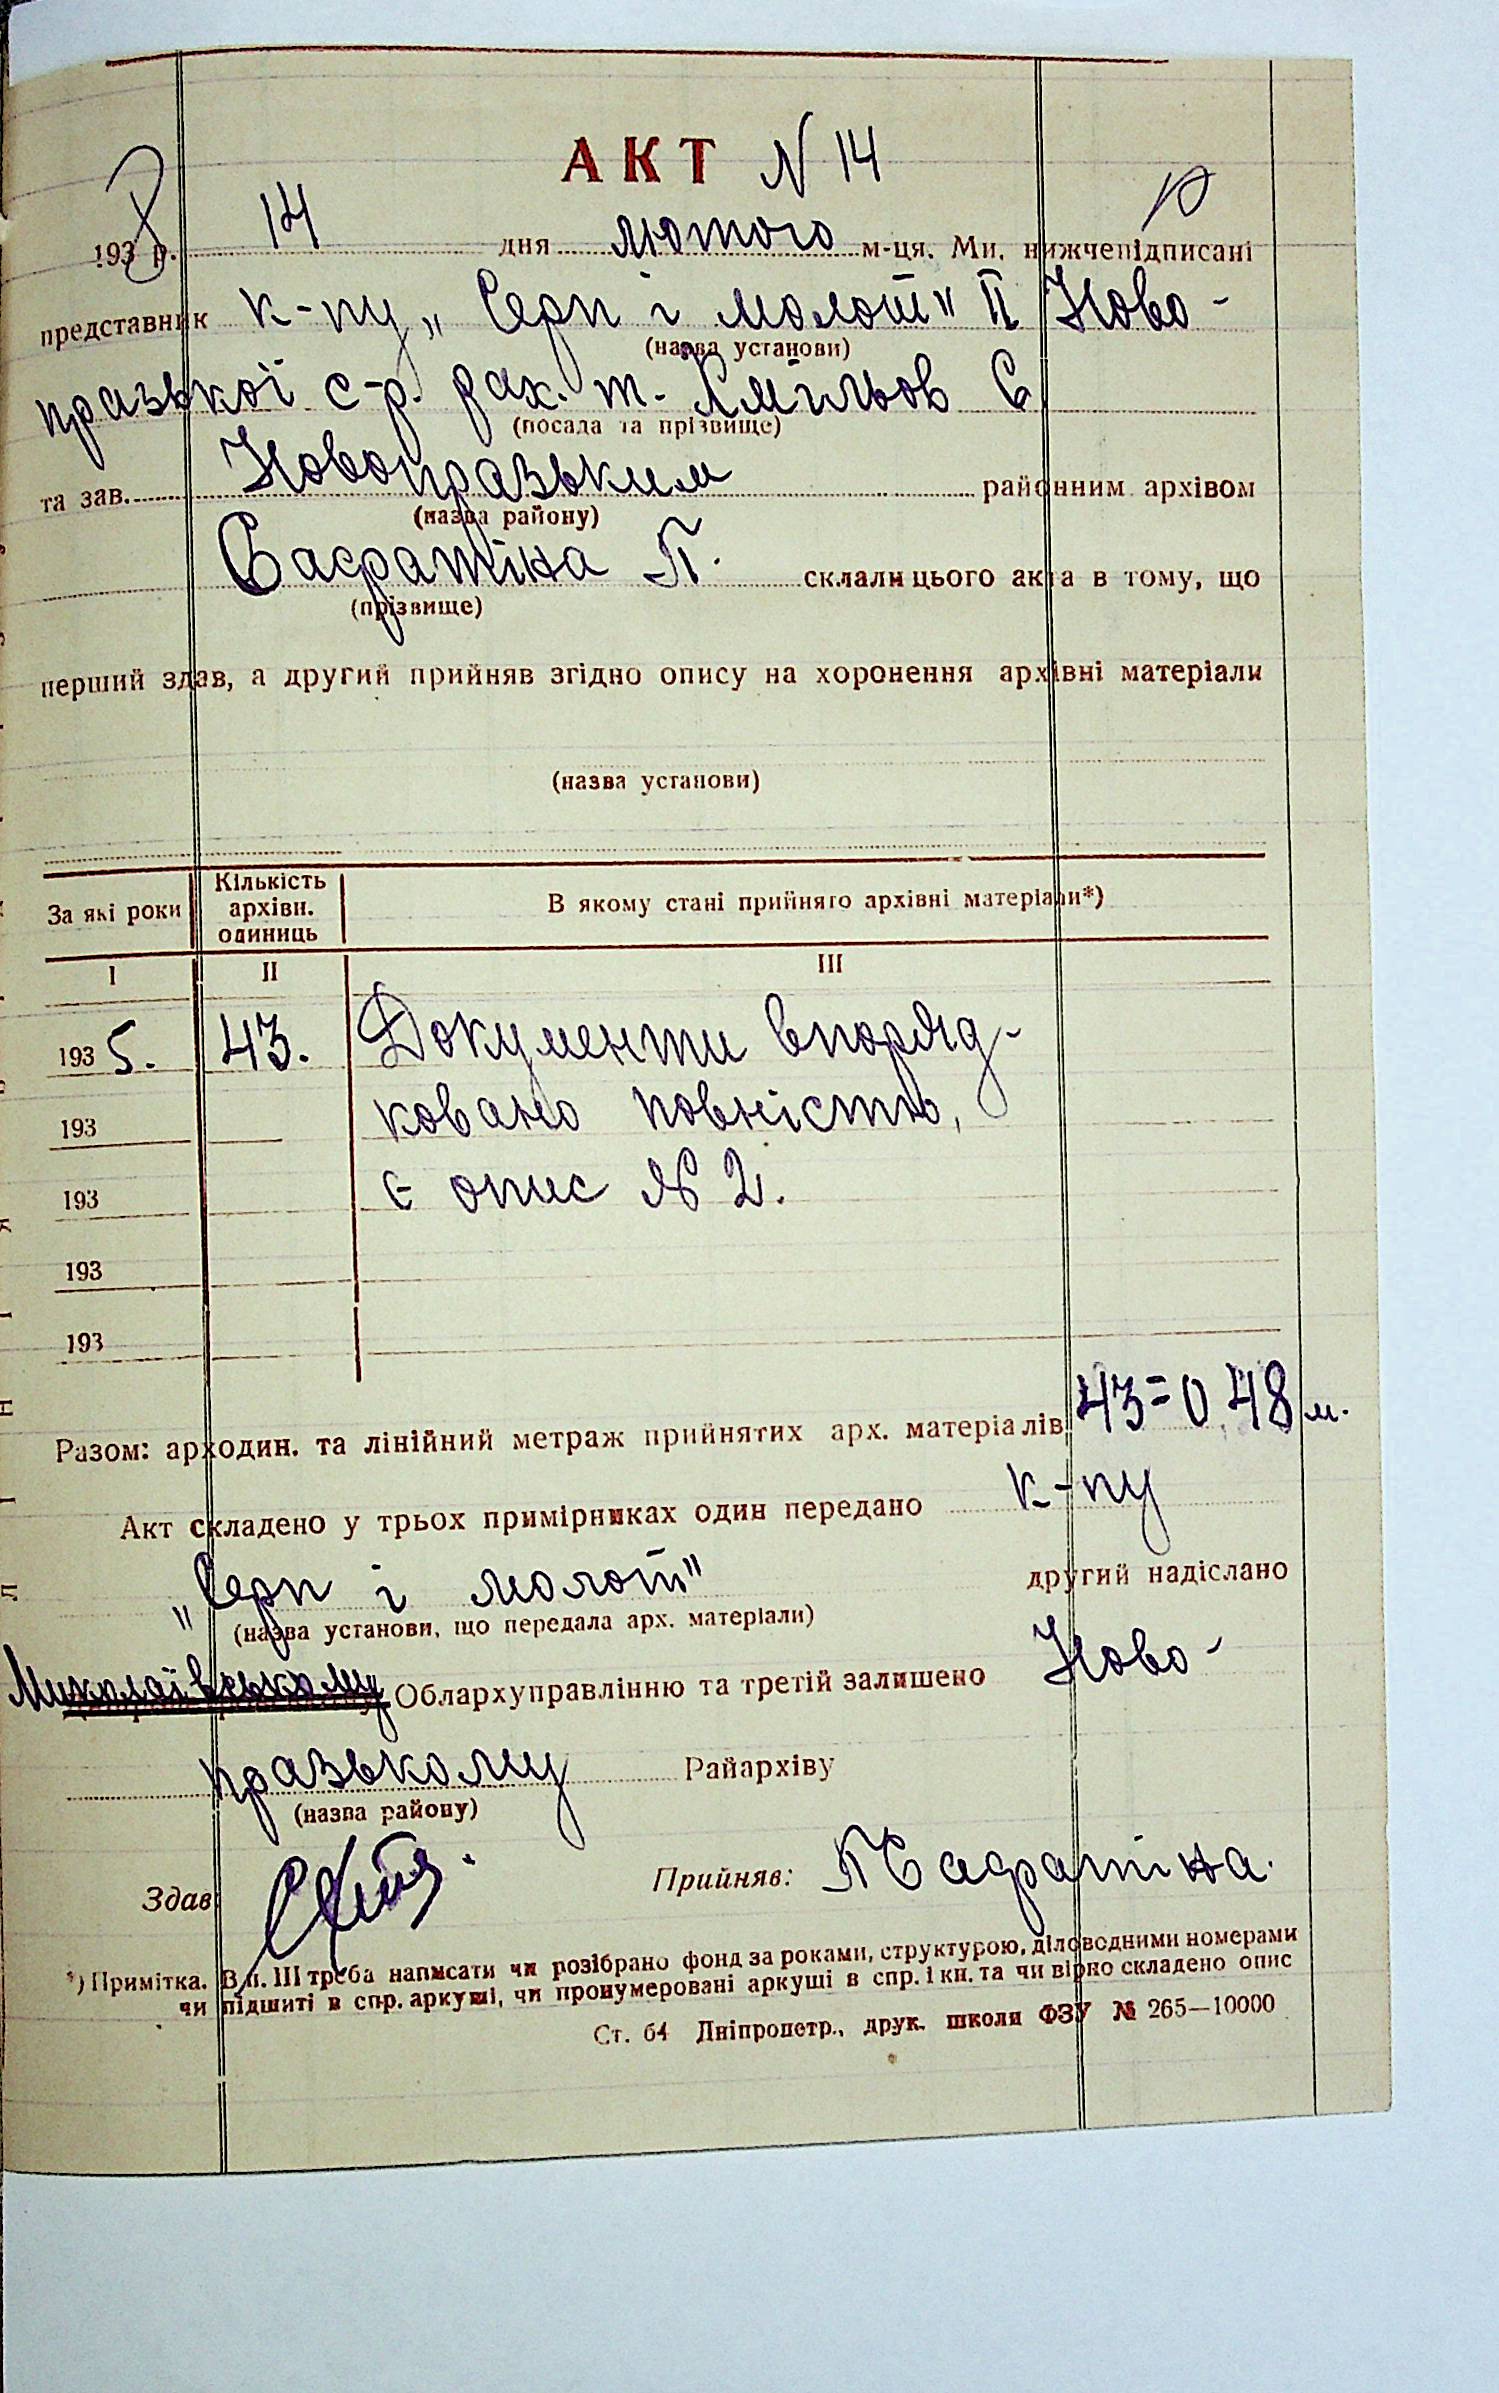 АКТ N 14
10
1938 р. 14 дня лютого м-ця. Ми, нижчепідписані
представник к-пу „Серп і молот" II Ново-
(назва установи)
празької с-р. рах. т. Хмільов Є
(посада та прізвище)
та зав. Новопразьким районним архівом
(назва району)
Сафратіна П. склали цього акта в тому, що
(прізвище)
перший здав, а другий прийняв згідно опису на хоронення архівні матеріали
(назва установи)
За які роки Кількість архівн. одиниць В якому стані прийнято архівні матеріали*)
I II III
1935. 43. Документи впоряд-
193 ковано повністю,
193 є опис № 2.
193
193
Разом: арходин. та лінійний метраж прийнятих арх. матеріалів 43=0,48 м.
Акт складено у трьох примірниках один передано к-пу
„Серп і молот" другий надіслано
(назва установи, що передала арх. матеріали)
Миколаївському Облархуправлінню та третій залишено Ново-
празькому Райархіву
(назва району)
Здав Прийняв: ПСафратіна.
*) Примітка. В п. III треба написати чи розібрано фонд за роками, структурою, діловодними номерами
чи підшиті в спр. аркуші, чи пронумеровані аркуші в спр. і кн. та чи вірно складено опис
Ст. 64 Дніпропетр., друк. школи ФЗУ № 265—10000